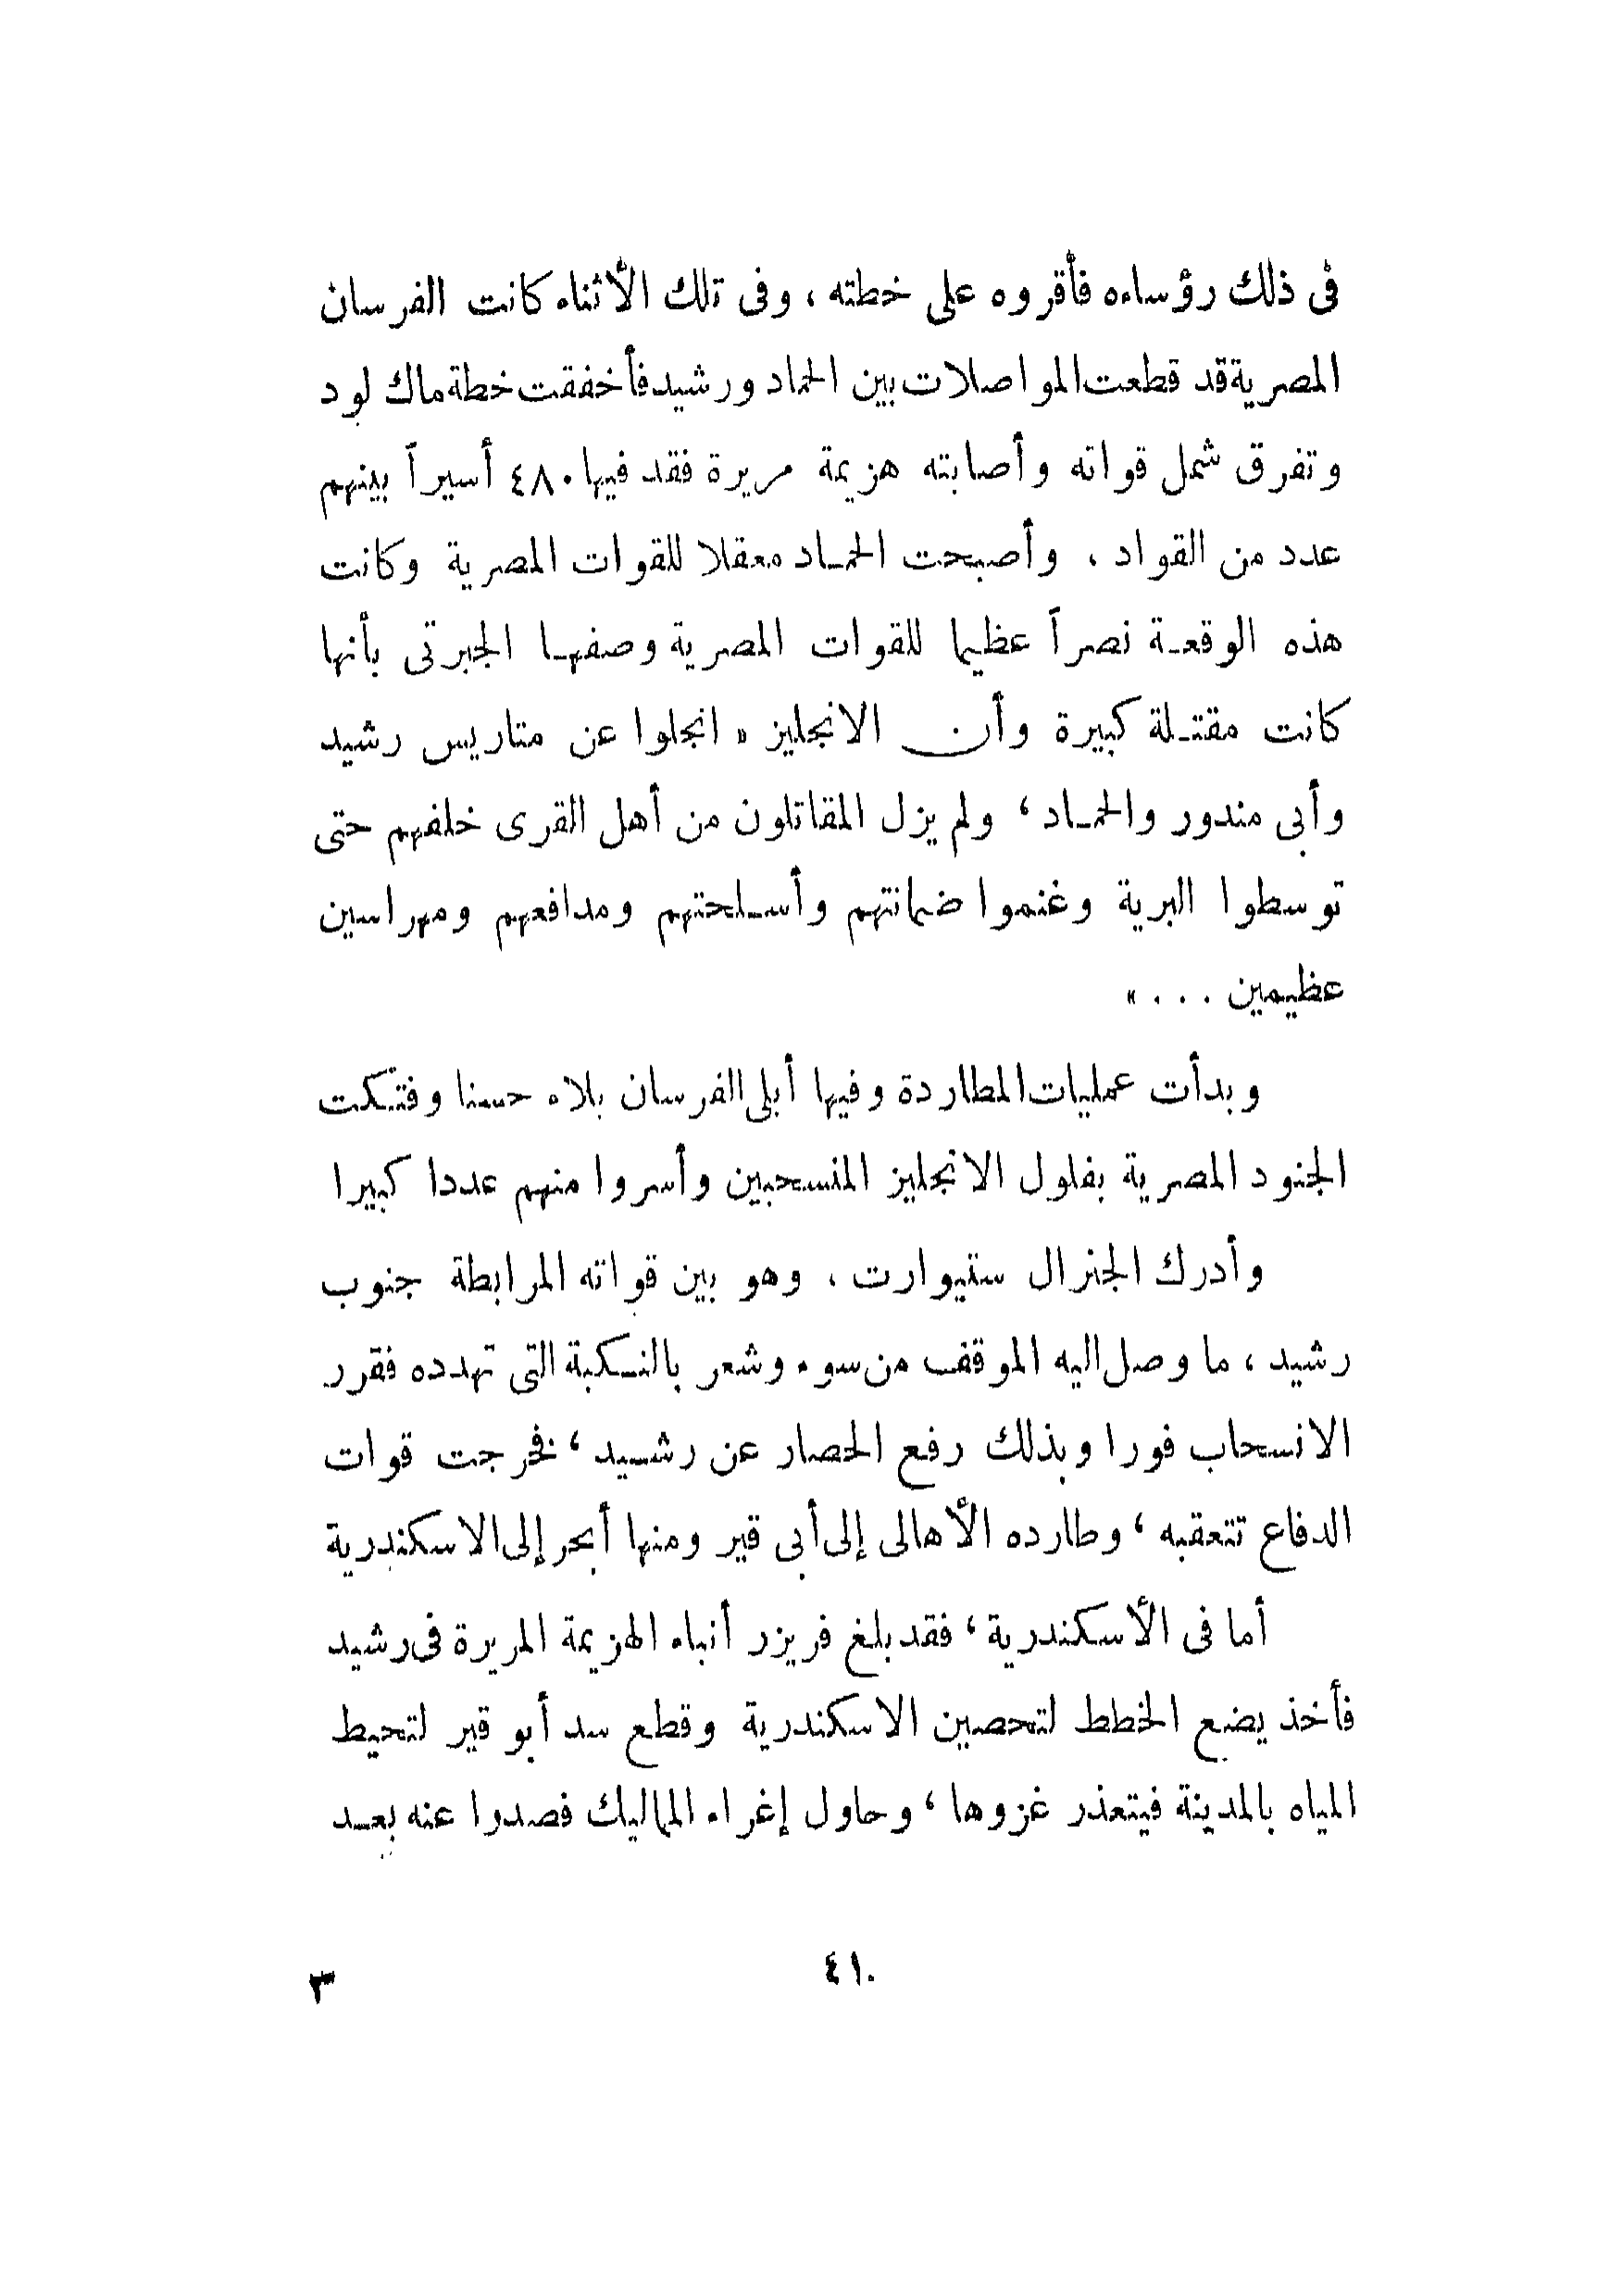 فى ذلك رؤساءه فأقروه على خطته ، وفى تلك الأثناء كانت الفرسان
المصرية قد قطعت المواصلات بين الحماد ورشيد فأخفقت خطة ماك لود
وتفرق شمل قواته وأصابته هزيمة مريرة فقد فيها ٤٨٠ أسيراً بينهم
عدد من القواد ، وأصبحت الحمـاد معقلا للقوات المصرية وكانت
هذه الوقعـة نصراً عظيما للقوات المصرية وصفهـا الجبرتى بأنها
كانت مقتـلة كبيرة وأن الانجليز « انجلوا عن متاريس رشيد
وأبى مندور والحمـاد ، ولم يزل المقاتلون من أهل القرى خلفهم حتى
توسطوا البرية وغنموا ضمانتهم وأسـلحتهم ومدافعهم ومهراسين
عظيمين . . . »
وبدأت عمليات المطاردة وفيها أبلى الفرسان بلاء حسنا وفتـكت
الجنود المصرية بفلول الانجليز المنسحبين وأسروا منهم عددا كبيرا
وأدرك الجنرال ستيوارت ، وهو بين قواته المرابطة جنوب
رشيد ، ما وصل اليه الموقف من سوء وشعر بالنـكبة التى تهدده فقرر
الانسحاب فورا وبذلك رفع الحصار عن رشـيد ، فخرجت قوات
الدفاع تتعقبه ، وطارده الأهالى إلى أبى قير ومنها أبحر إلى الاسكندرية
أما فى الأسكندرية ، فقد بلغ فريزر أنباء الهزيمة المريرة فى رشيد
فأخذ يضع الخطط لتحصين الاسكندرية وقطع سد أبو قير لتحيط
المياه بالمدينة فيتعذر غزوها ، وحاول إغراء المماليك فصدوا عنه بعـد
٤١٠
٣